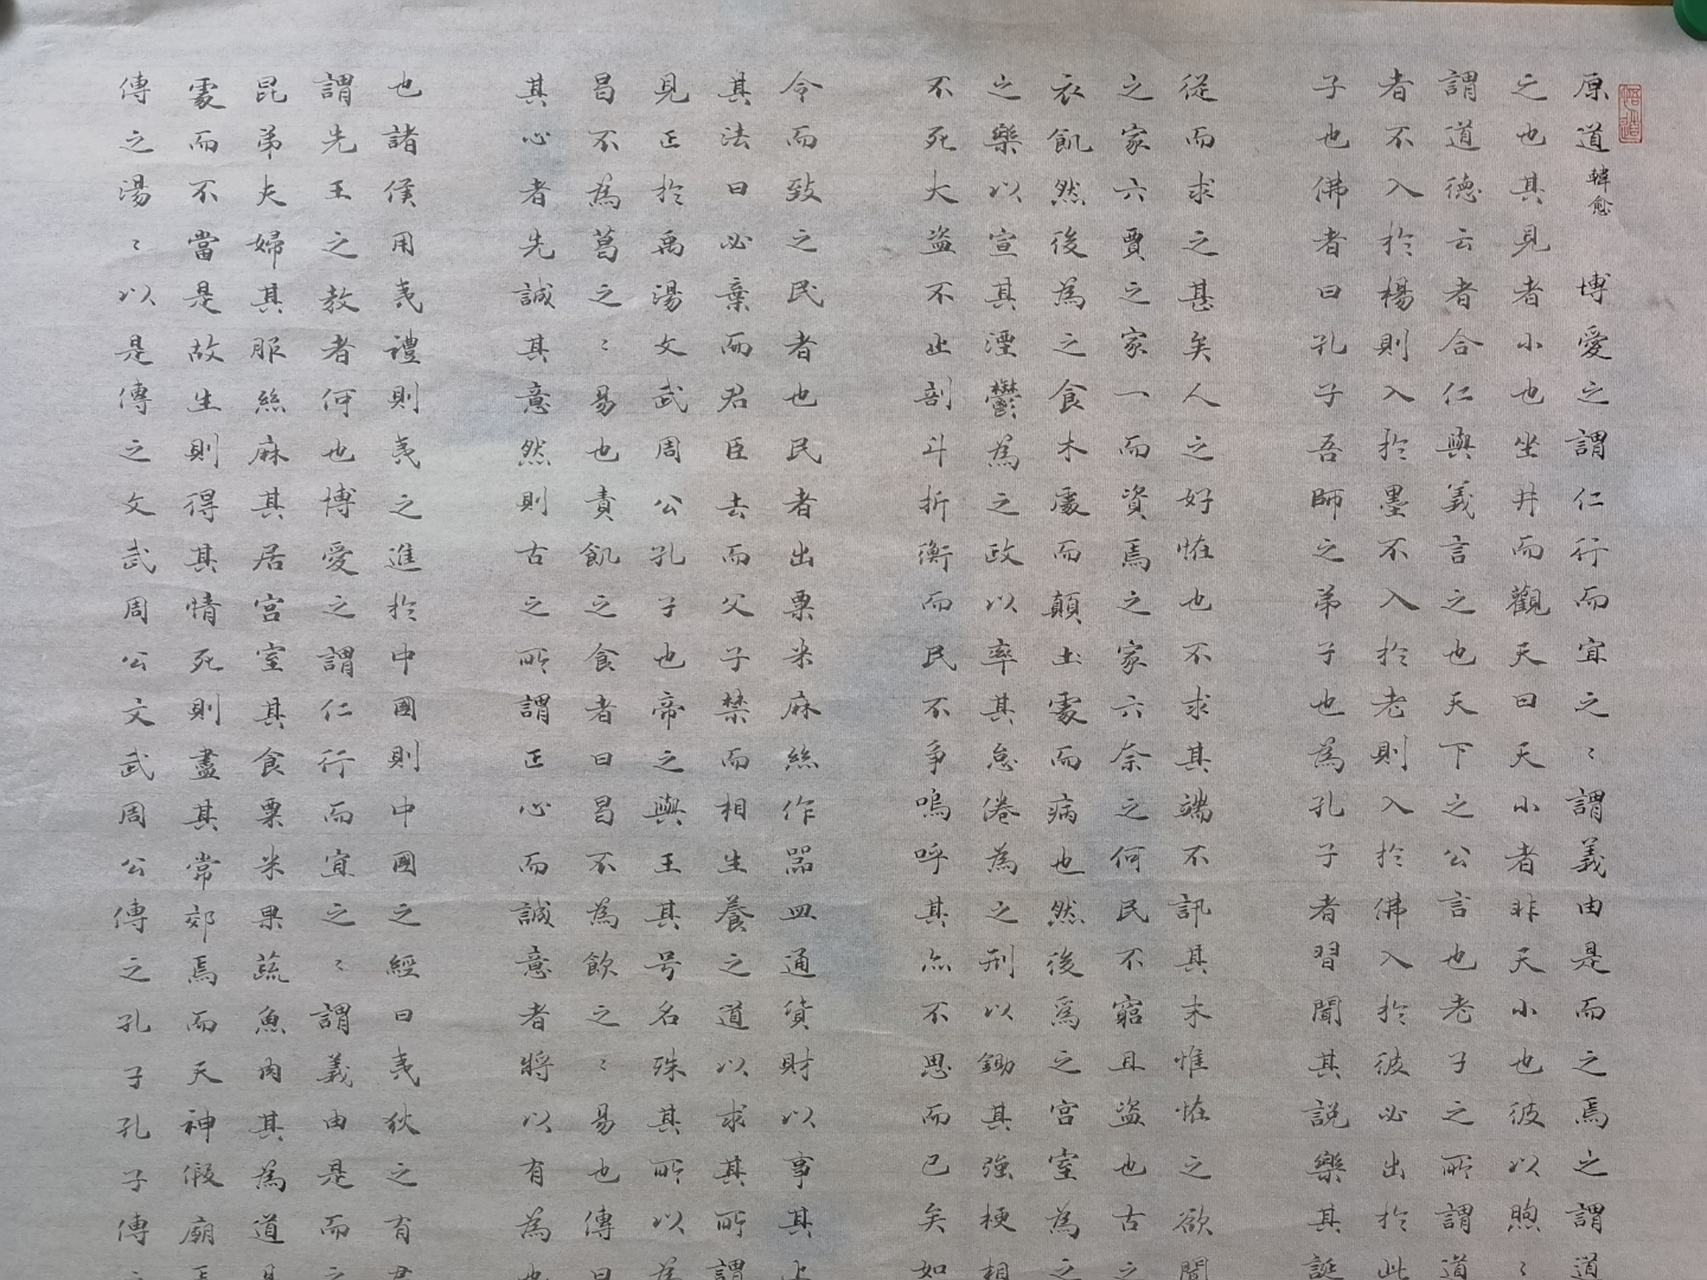 悟道
原道 韓愈 博愛之謂仁行而宜之〻謂義由是而之焉之謂道
之也其見者小也坐井而觀天曰天小者非天小也彼以煦〻
謂道德云者合仁與義言之也天下之公言也老子之所謂道
者不入於楊則入於墨不入於老則入於佛入於彼必出於此
子也佛者曰孔子吾師之弟子也為孔子者習聞其説樂其誕
從而求之甚矣人之好怪也不求其端不訊其末惟怪之欲聞
之家六賈之家一而資焉之家六奈之何民不窮且盜也古之
衣飢然後為之食木處而顛土處而病也然後爲之宮室為之
之樂以宣其湮鬱為之政以率其怠倦為之刑以鋤其強梗相
不死大盜不止剖斗折衡而民不爭嗚呼其亦不思而已矣如
令而致之民者也民者出粟米麻絲作器皿通貨財以事其上
其法曰必棄而君臣去而父子禁而相生養之道以求其所謂
見正於禹湯文武周公孔子也帝之與王其号名殊其所以為
曷不為葛之〻易也責飢之食者曰曷不為飲之〻易也傳曰
其心者先誠其意然則古之所謂正心而誠意者將以有為也
也諸侯用夷禮則夷之進於中國則中國之經曰夷狄之有君
謂先王之教者何也博愛之謂仁行而宜之〻謂義由是而之
昆弟夫婦其服絲麻其居宮室其食粟米果蔬魚肉其為道易
處而不當是故生則得其情死則盡其常郊焉而天神假廟焉
傳之湯〻以是傳之文武周公文武周公傳之孔子孔子傳之